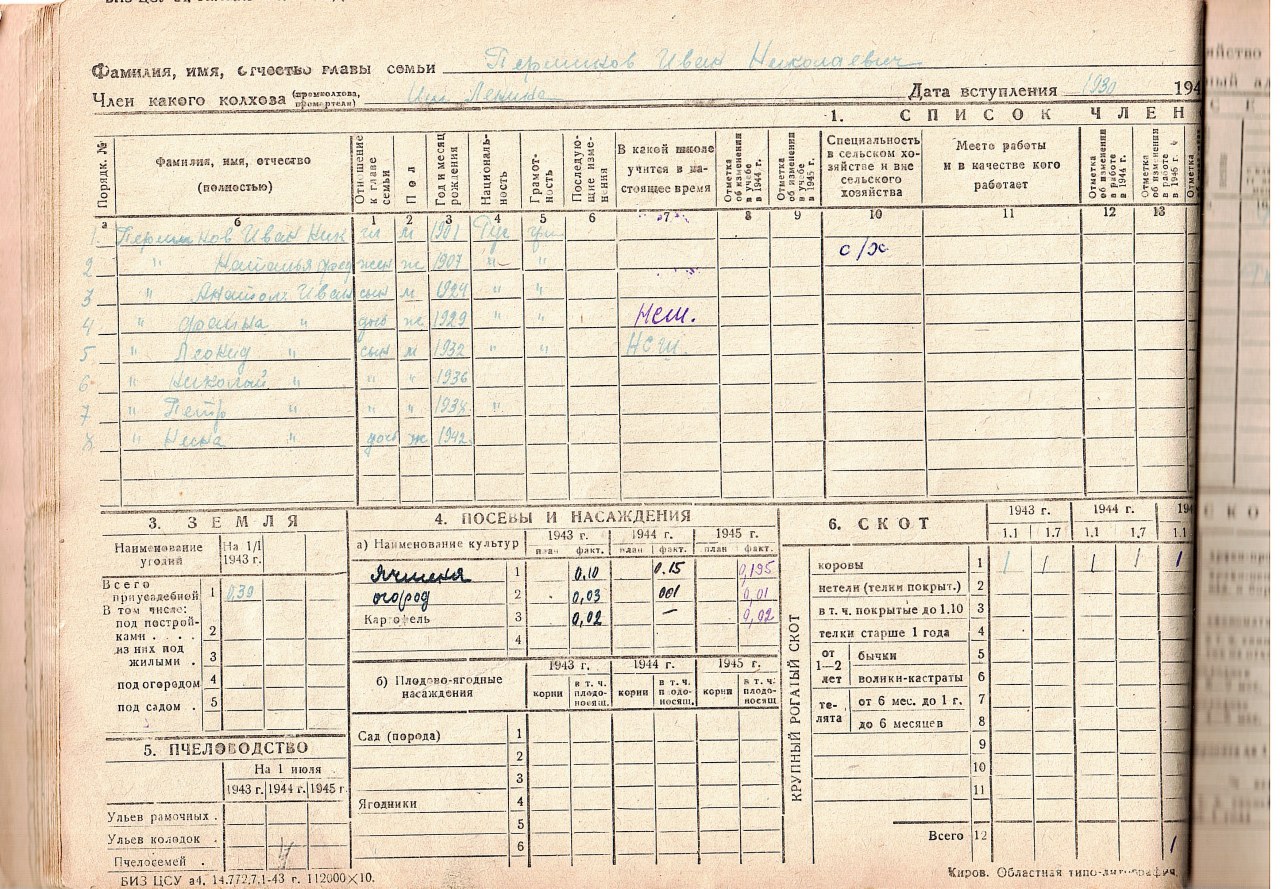 Фамилия, имя, отчество главы семьи Перминов Иван Николаевич
Член какого колхоза (промколхоза, промартели) Им Ленина Дата вступления 1930 194
1. СПИСОК ЧЛЕН
Порядк. №
Фамилия, имя, отчество (полностью)
Отношение к главе семьи
Пол
Год и месяц рождения
Националь-ность
Грамот-ность
Последую-щие изме-нения
В какой школе учится в на-стоящее время
Отметка об изменении в учебе в 1944 г.
Отметка об изменении в учебе в 1945 г.
Специальность в сельском хо-зяйстве и вне сельского хозяйства
Место работы и в качестве кого работает
Отметка об изменении в работе в 1944 г.
Отметка об изменении в работе в 1945 г.
Отметка
а б 1 2 3 4 5 6 7 8 9 10 11 12 13
1 Перминов Иван Ник гл м 1901 Рус гр.
2 " Наталья жен ж 1907 " " с/х
3 " Анатол. Иван сын м 1924 " "
4 " Фаина " доч ж 1929 " " нсш.
5 " Леонид " сын м 1932 " " НСШ.
6 " Николай " " " 1936
7 " Петр " " " 1938 "
8 " Нина " доч ж 1942
3. ЗЕМЛЯ
Наименование угодий На 1/I 1943 г.
Всего приусадебной 1 0,39
В том числе:
под построй-ками . . . . 2
из них под жилыми . 3
под огородом 4
под садом . 5
5. ПЧЕЛОВОДСТВО
На 1 июля
1943 г. 1944 г. 1945 г.
Ульев рамочных .
Ульев колодок .
Пчелосемей .
4. ПОСЕВЫ И НАСАЖДЕНИЯ
а) Наименование культур 1943 г. 1944 г. 1945 г.
план факт. план факт. план факт.
Ячменя 1 0.10 0.15 0,195
огород 2 0,03 001 0,01
Картофель 3 0,02 — 0,02
4
б) Плодово-ягодные насаждения 1943 г. 1944 г. 1945 г.
корни в т. ч. плодо-носящ. корни в т. ч. плодо-носящ. корни в т. ч. плодо-носящ
Сад (порода) 1
2
3
Ягодники 4
5
6
6. СКОТ
1943 г. 1944 г. 194
1.1 1.7 1.1 1.7 1.1
КРУПНЫЙ РОГАТЫЙ СКОТ
коровы 1 1 1 1 1 1
нетели (телки покрыт.) 2
в т. ч. покрытые до 1.10 3
телки старше 1 года 4
от 1—2 лет бычки 5
волики-кастраты 6
те-лята от 6 мес. до 1 г. 7
до 6 месяцев 8
9
10
11
Всего 12 1
БИЗ ЦСУ а4. 14.772.7.1-43 г. 112000×10.
Киров. Областная типо-литография.